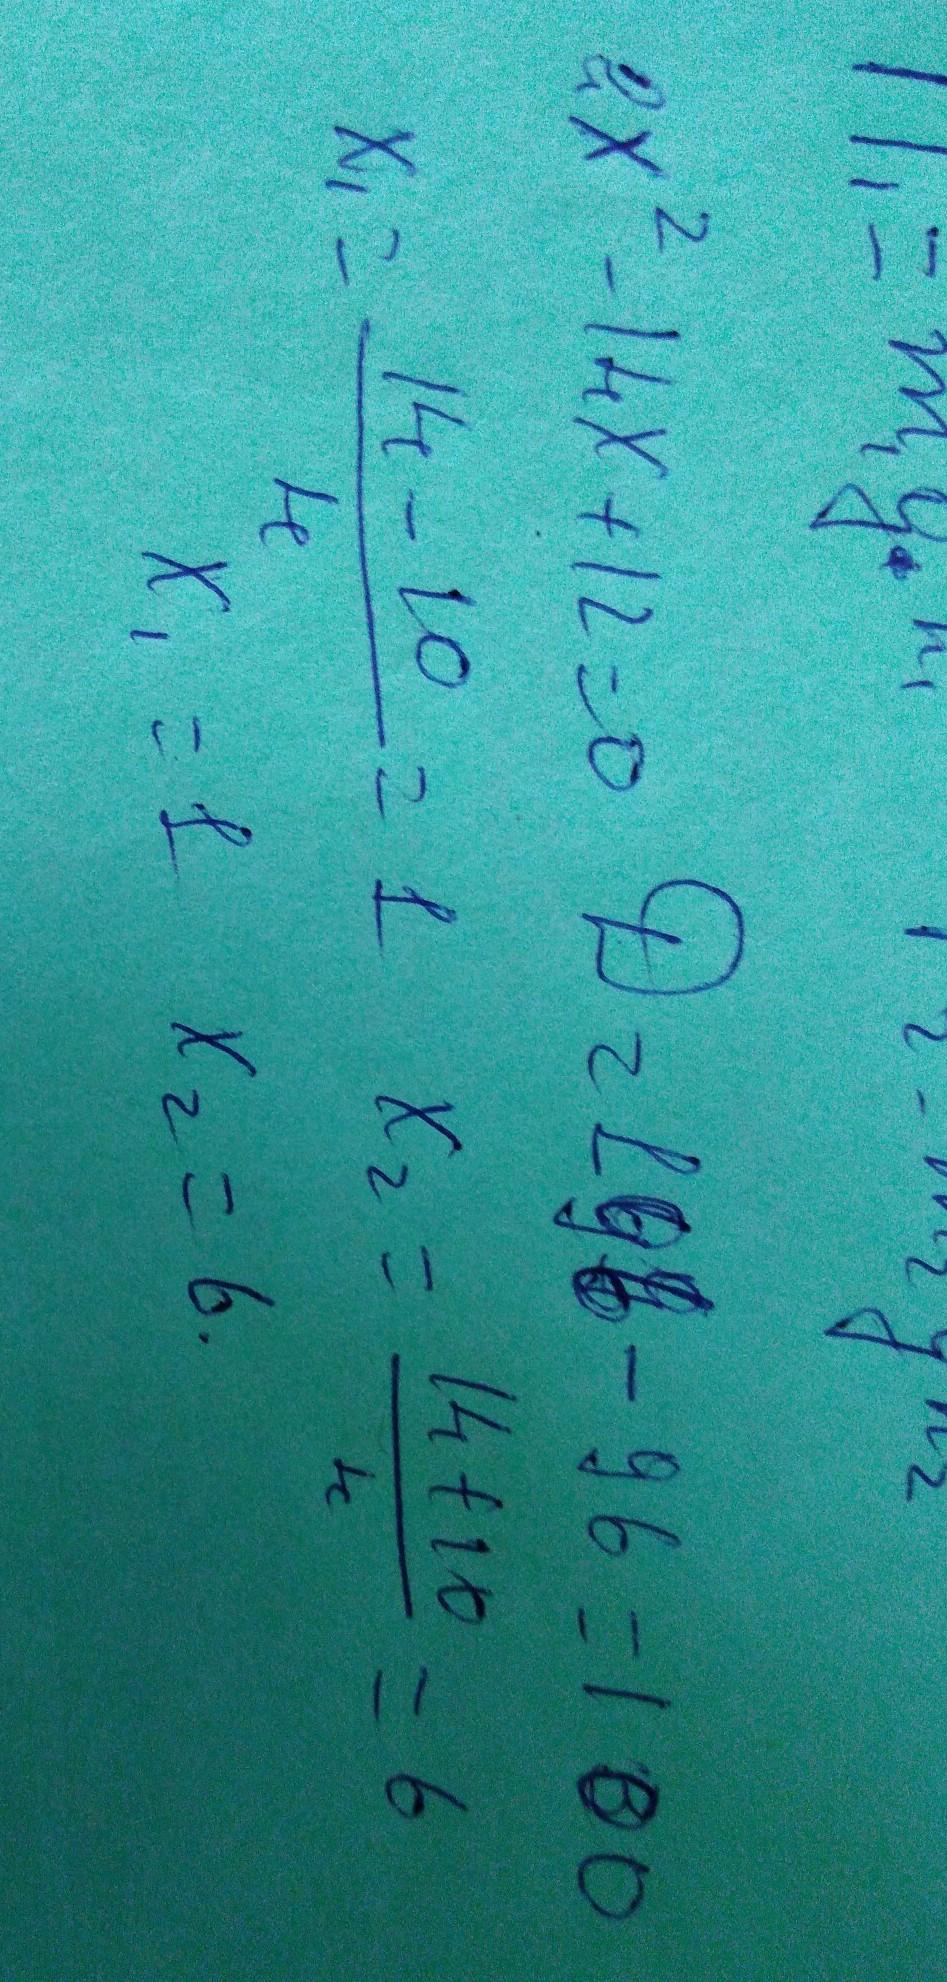 П₁ = m₁g·h₁ П₂ = m₂gh₂
2x² - 14x + 12 = 0 D = 196 - 96 = 100
x₁ = (14 - 10)/4 = 1 x₂ = (14 + 10)/4 = 6
x₁ = 1 x₂ = 6.